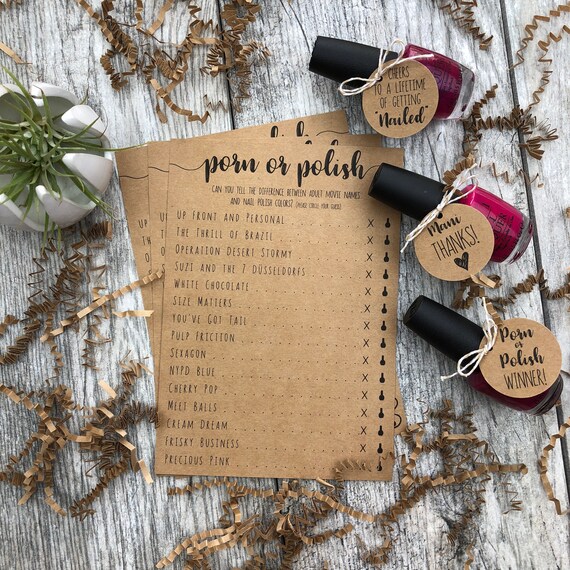 porn or polish
CAN YOU TELL THE DIFFERENCE BETWEEN ADULT MOVIE NAMES
AND NAIL POLISH COLORS? (PLEASE CIRCLE YOUR GUESS)
UP FRONT AND PERSONAL X
THE THRILL OF BRAZIL X
OPERATION DESERT STORMY X
SUZI AND THE 7 DÜSSELDORFS X
WHITE CHOCOLATE X
SIZE MATTERS X
YOU'VE GOT TAIL X
PULP FRICTION X
SEXAGON X
NYPD BLUE X
CHERRY POP X
MELT BALLS X
CREAM DREAM X
FRISKY BUSINESS X
PRECIOUS PINK X
CHEERS
TO A LIFETIME
OF GETTING
"Nailed"
THANKS!
Porn
or
Polish
WINNER!